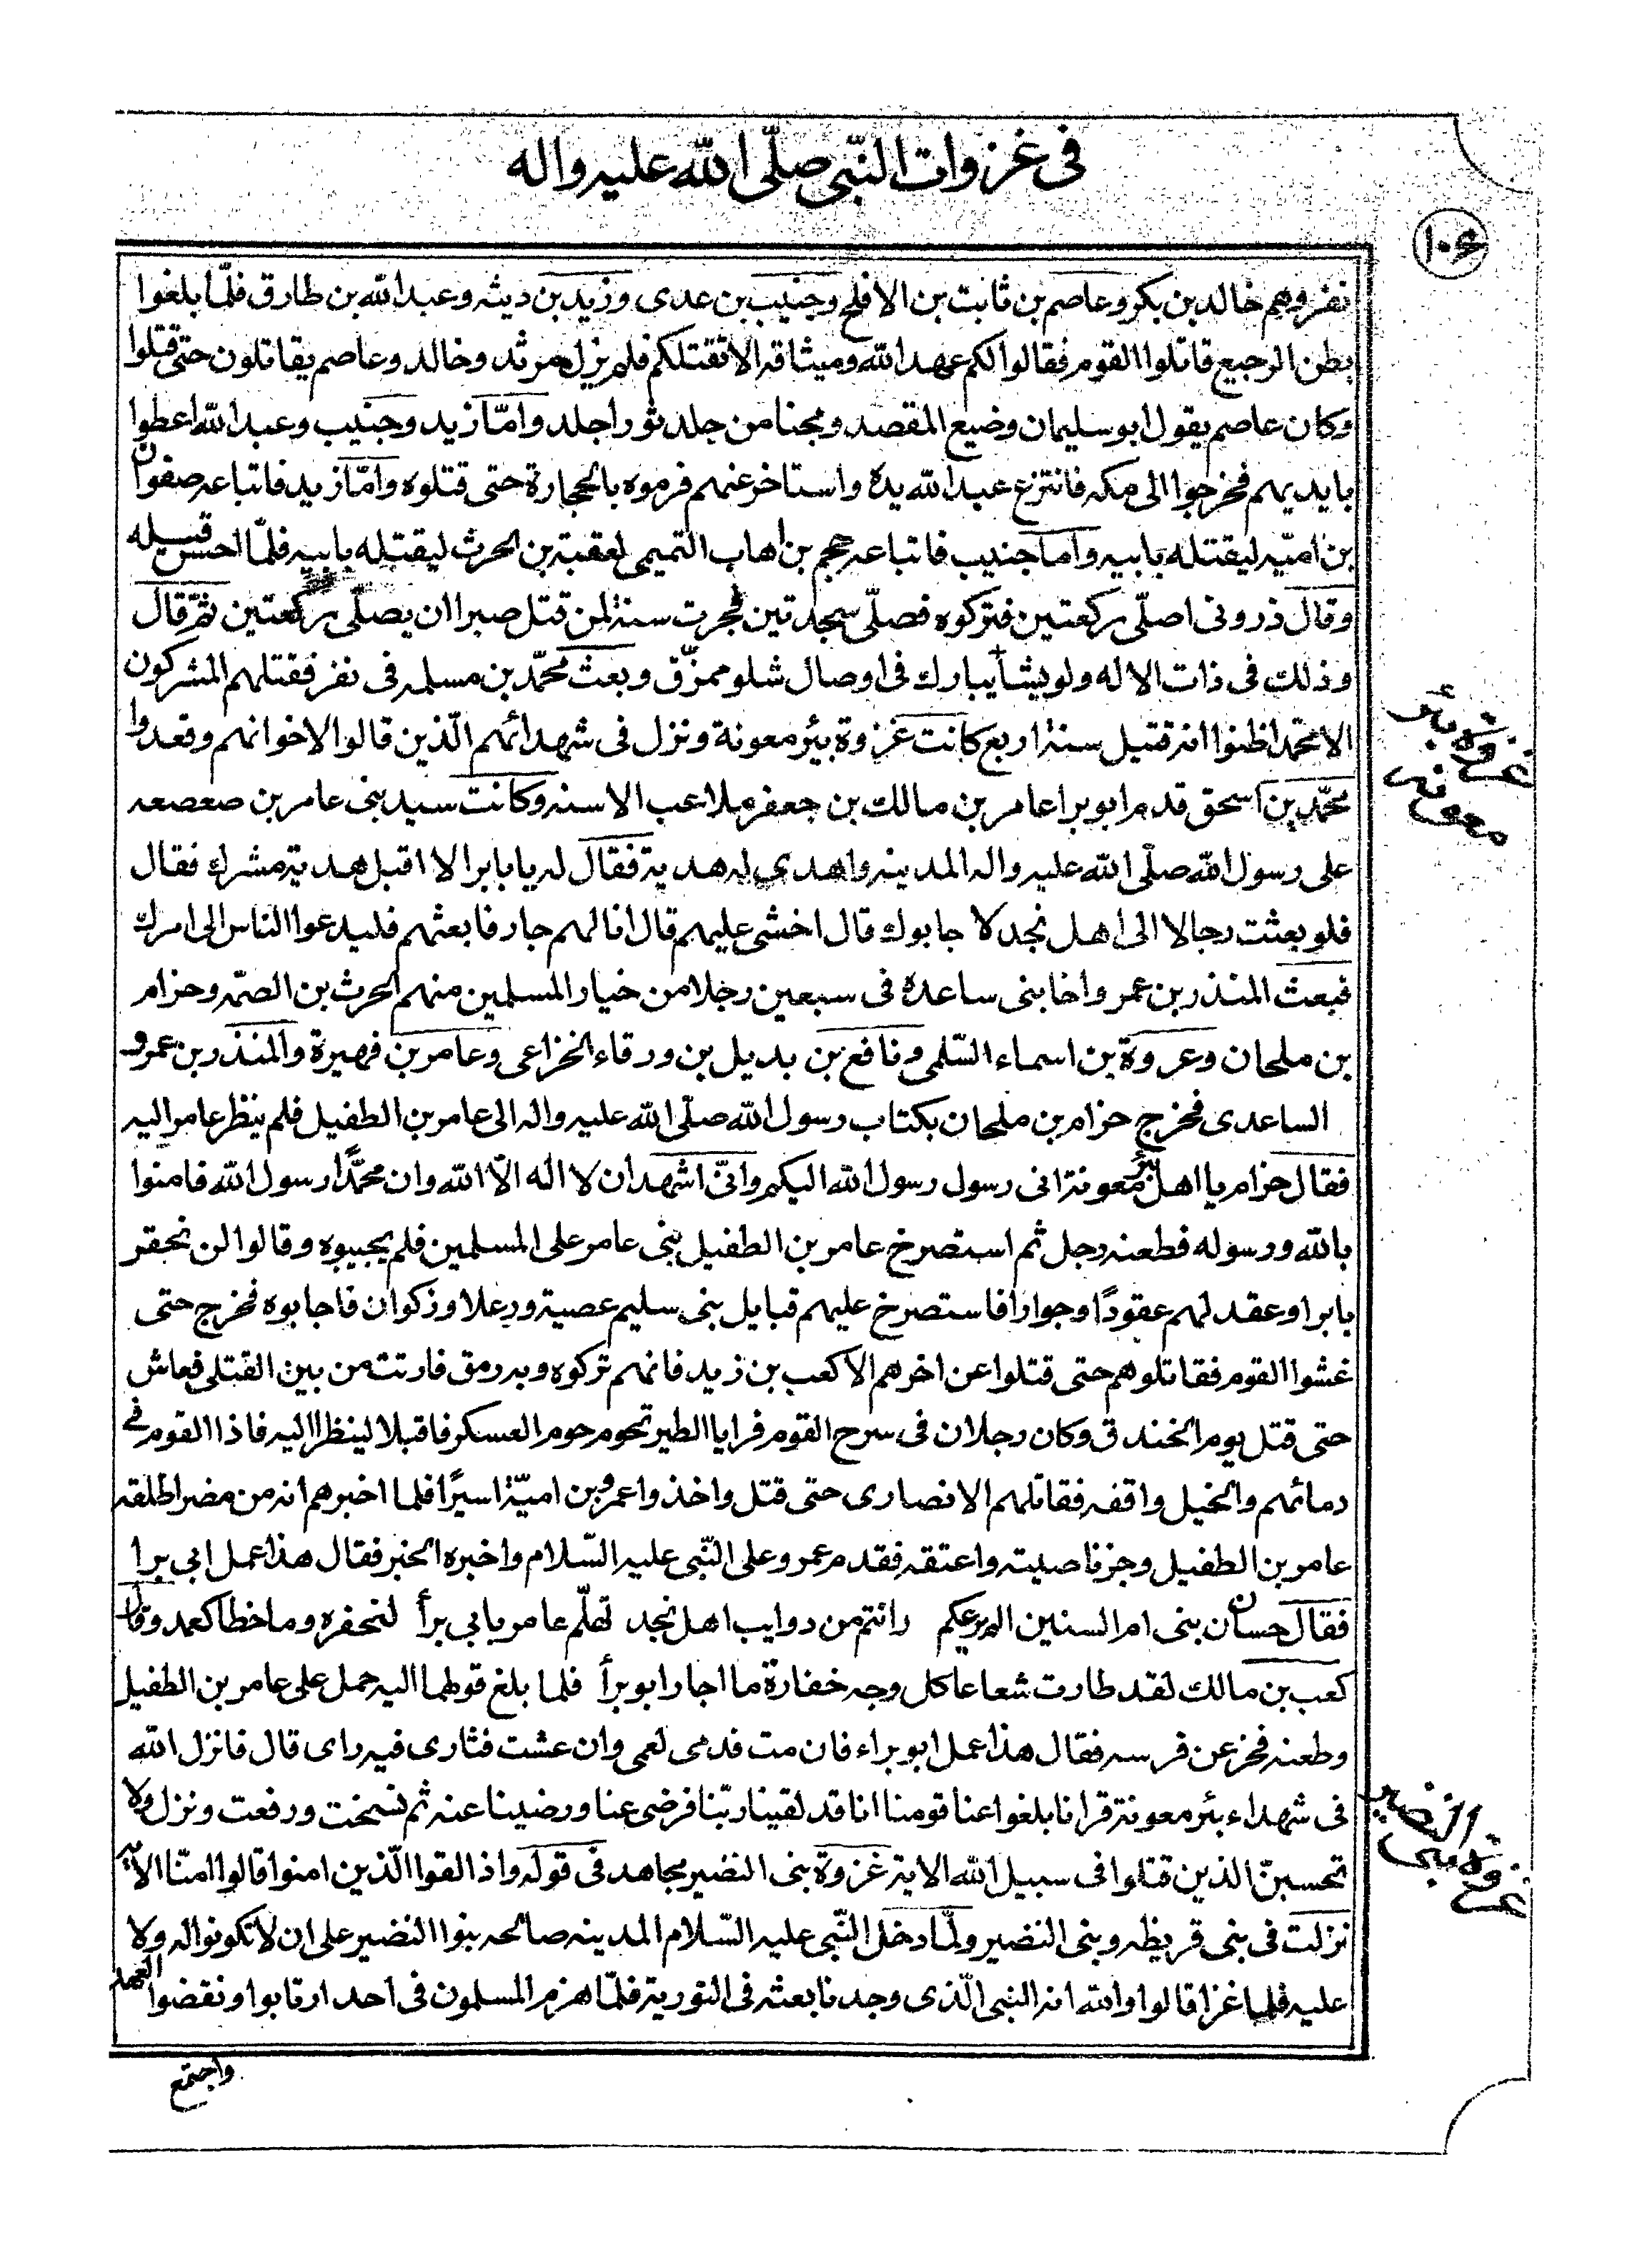 فى غزوات النّبى صلّى الله عليه واله
١٠٦
نفر وهم خالد بن بكر وعاصم بن ثابت بن الافلح وجنيب بن عدى وزيد بن ديثه وعبد الله بن طارق فلمّا بلغوا
بطن الرجيع قاتلوا القوم فقالوا لكم عهد الله وميثاقه الا نقتلكم فلم يزل مرثد وخالد وعاصم يقاتلون حتى قتلوا
وكان عاصم يقول ابو سليمان وضيع المقصد ومجنا من جلد ثور اجلد وامّا زيد وجنيب وعبد الله اعطوا
بايديهم فخرجوا الى مكه فانتزع عبد الله يده واستاخر عنهم فرموه بالحجارة حتى قتلوه وامّا زيد فاتباعه صفوان
بن اميّه ليقتله بابيه وامّا جنيب فاتباعه حجم بن اهاب التميمى لعقبة بن الحرث ليقتله بابيه فلمّا احسّ قتله
وقال ذرونى اصلّى ركعتين فتركوه فصلّى سجدتين فجرت سنة لمن قتل صبرا ان يصلّى ركعتين ثمّ قال
وذلك فى ذات الاله ولو يشأ يبارك فى اوصال شلو ممزّق وبعث محمّد بن مسلمه فى نفر فقتلهم المشركون
الا محمّدا ظنوا انه قتيل سنة اربع كانت غزوة بئر معونة ونزل فى شهدائهم الّذين قالوا لاخوانهم وقعدوا
محمّد بن اسحق قدم ابو برا عامر بن مالك بن جعفر ملاعب الاسنه وكانت سيد بنى عامر بن صعصعه
على رسول الله صلّى الله عليه واله المدينه واهدى له هدية فقال له يا بابرا لا اقبل هدية مشرك فقال
فلو بعثت رجالا الى اهل نجد لاجابوك قال اخشى عليهم قال انا لهم جار فابعثهم فليدعوا الناس الى امرك
فبعث المنذر بن عمر واخا بنى ساعدة فى سبعين رجلا من خيار المسلمين منهم الحرث بن الصمّه وحزام
بن ملحان وعروة بن اسماء السّلمى ونافع بن بديل بن ورقاء الخزاعى وعامر بن فهيرة والمنذر بن عمرو
الساعدى فخرج حزام بن ملحان بكتاب رسول الله صلّى الله عليه واله الى عامر بن الطفيل فلم ينظر عامر اليه
فقال حزام يا اهل بئر معونة انى رسول رسول الله اليكم وانّى اشهد ان لا اله الّا الله وان محمّدًا رسول الله فامنوا
بالله ورسوله فطعنه رجل ثم استصرخ عامر بن الطفيل بنى عامر على المسلمين فلم يجيبوه وقالوا لن نحقر
بابرا وعقد لهم عقودًا وجوارا فاستصرخ عليهم قبايل بنى سليم عصية ورعلا وذكوان فاجابوه فخرج حتى
غشوا القوم فقاتلوهم حتى قتلوا عن اخرهم الا كعب بن زيد فانهم تركوه وبه رمق فارتث من بين القتلى فعاش
حتى قتل يوم الخندق وكان رجلان فى سرح القوم فرايا الطير تحوم حوم العسكر فاقبلا لينظرا اليه فاذا القوم فى
دمائهم والخيل واقفه فقاتلهم الانصارى حتى قتل واخذوا عمرو بن اميّة اسيرًا فلما اخبرهم انه من مضر اطلقه
عامر بن الطفيل وجز ناصيته واعتقه فقدم عمرو على النّبى عليه السّلام واخبره الخبر فقال هذا عمل ابى برا
فقال حسان بنى ام السنين الم يرعكم رانتم من دوايب اهل نجد تهلّم عامر بابى برأ لنحفره وما خطا كعمد وقال
كعب بن مالك لقد طارت شعاعا كل وجه خفارة ما اجار ابو برأ فلما بلغ قولهما اليه حمل على عامر بن الطفيل
وطعنه فخز عن فرسه فقال هذا عمل ابو براء فان مت فدمى لعمى وان عشت فثارى فيه راى قال فانزل الله
فى شهداء بئر معونة قرانا بلغوا عنا قومنا انا قد لقينا ربّنا فرضى عنا ورضينا عنه ثم نسخت ورفعت ونزل ولا
تحسبنّ الذين قتلوا فى سبيل الله الاية غزوة بنى النضير مجاهد فى قوله واذا لقوا الّذين امنوا قالوا امنّا الاية
نزلت فى بنى قريظه وبنى النضير ولمّا دخل النّبى عليه السّلام المدينه صالحه بنوا النضير على ان لا تكونوا له ولا
عليه فلما غزا قالوا والله انه النبى الّذى وجدنا بعثه فى التورية فلمّا هزم المسلمون فى احد ارتابوا ونقضوا العهد
واجتمع
غزوة بئر
معونه
غزوة بنى
النضير